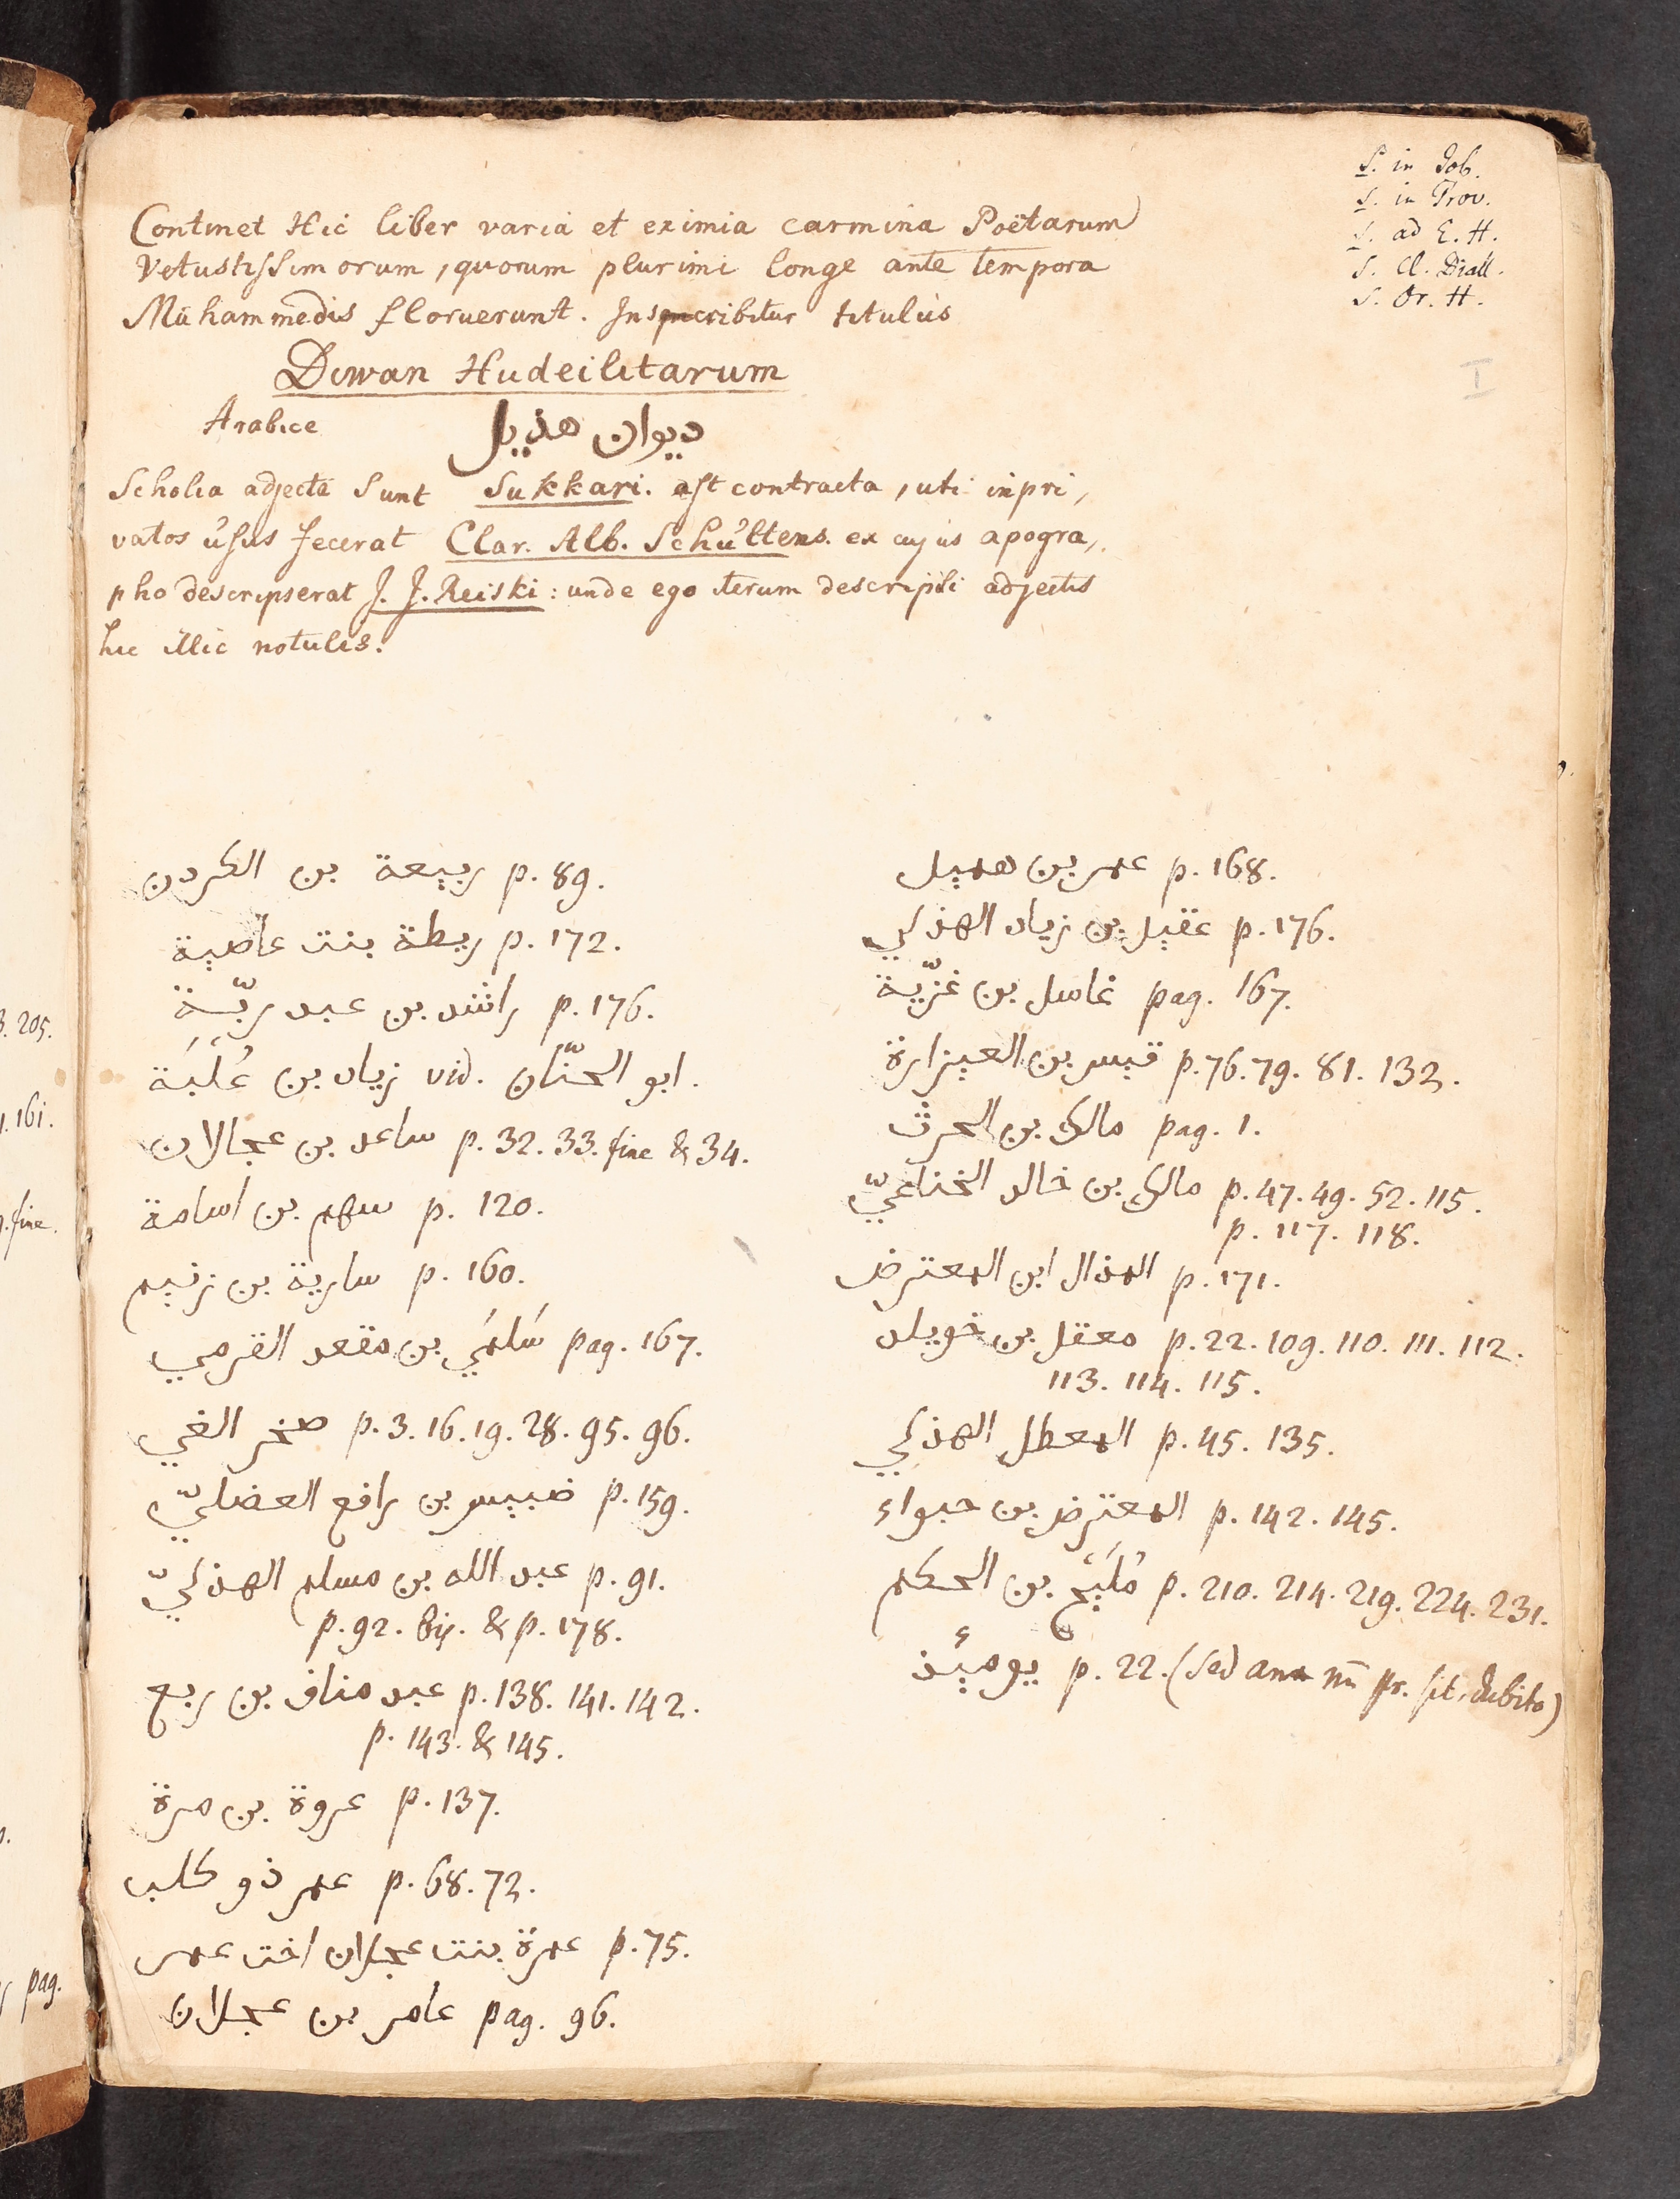 S. in Job.
S. in Prov.
S. ad E. H.
S. Cl. Diall.
S. Or. H.
I
Continet Hic liber varia et eximia carmina Poëtarum
Vetustissimorum, quorum plurimi longe ante tempora
Muhammedis floruerunt. Inscribitur titulus
Diwan Hudeilitarum
Arabice ديوان هذيل
Scholia adjecta sunt Sukkari. ast contracta, uti inpri,
vatos usus fecerat Clar. Alb. Schultens. ex cujus apogra,
pho descripserat J. J. Reiski: unde ego iterum descripsi adjectis
hic illic notulis.
ربيعة بن الكردن p. 89.
ريطة بنت عاصية p. 172.
راشد بن عبد ربّة p. 176.
ابو الحنّان vid. زياد بن عُلْبَة.
ساعد بن عجالان p. 32. 33. fine & 34.
سهم بن اسامة p. 120.
سارية بن زنيم p. 160.
سَلمَي بن مقعد القرمي pag. 167.
صخر الغي p. 3. 16. 19. 28. 95. 96.
ضبيس بن رافع العضليّ p. 159.
عبد الله بن مسلم الهذليّ p. 91.
p. 92. bis. & p. 178.
عبد مناف بن ربع p. 138. 141. 142.
p. 143. & 145.
عروة بن مرة p. 137.
عمر ذو كلب p. 68. 72.
عمرة بنت عجلان اخت عمر p. 75.
عامر بن عجلان pag. 96.
عمر بن هميل p. 168.
عقيل بن زياد الهذلي p. 176.
غاسل بن غزّية pag. 167.
قيس بن العيزارة p. 76. 79. 81. 132.
مالك بن الحرث pag. 1.
مالك بن خالد الخناعيّ p. 47. 49. 52. 115.
p. 117. 118.
المذال ابن المعترض p. 171.
معقل بن خويلد p. 22. 109. 110. 111. 112.
113. 114. 115.
المعطل الهذلي p. 45. 135.
المعترض بن حبواء p. 142. 145.
مُلَيْح بن الحكم p. 210. 214. 219. 224. 231.
يومئذ p. 22. (sed an pr. sit, dubito)
3. 205.
1. 161.
fine.
pag.